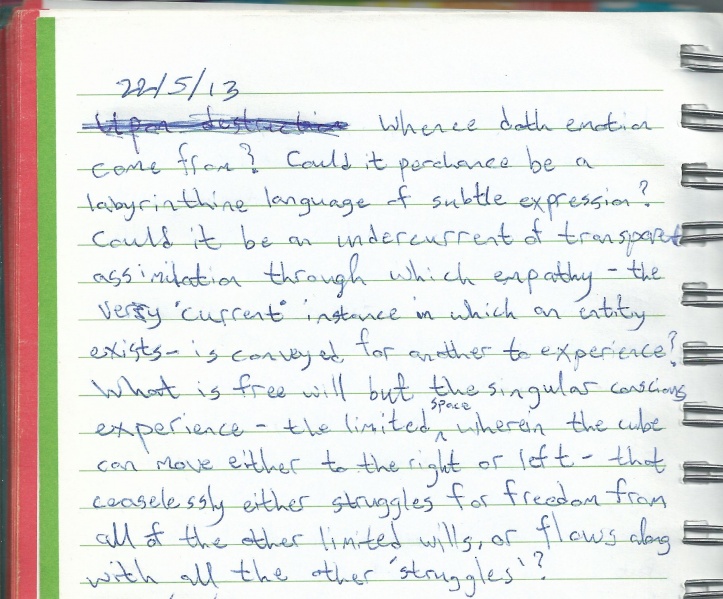 22/5/13
Upon destruction Whence doth emotion
come from? Could it perchance be a
labyrinthine language of subtle expression?
Could it be an undercurrent of transparent
assimilation through which empathy - the
very "current" instance in which an entity
exists - is conveyed for another to experience?
What is free will but the singular conscious
experience - the limited space wherein the cube
can move either to the right or left - that
ceaselessly either struggles for freedom from
all of the other limited wills, or flows along
with all the other 'struggles'?